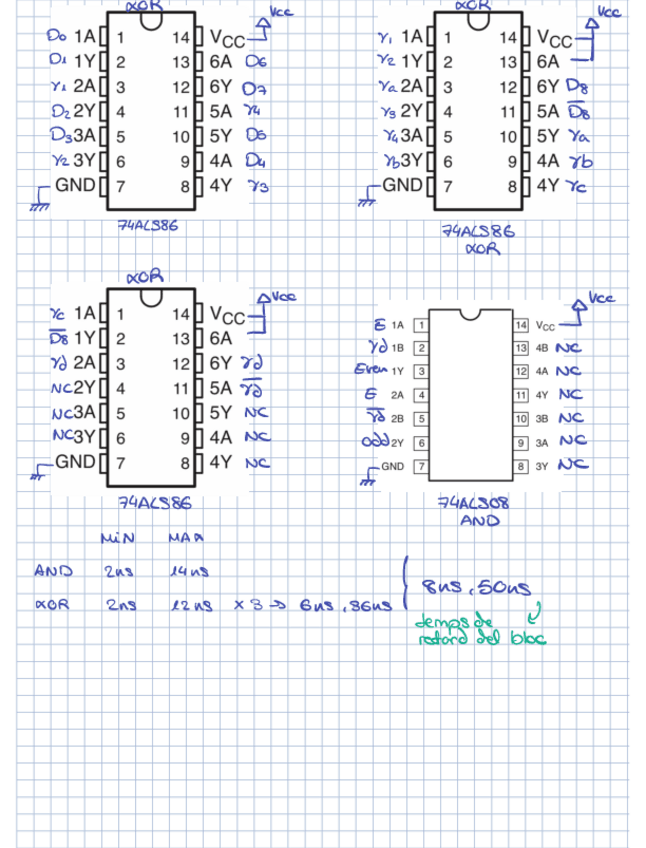 XOR XOR
D0 1A 1 14 VCC Vcc γ1 1A 1 14 VCC Vcc
D1 1Y 2 13 6A D6 γ2 1Y 2 13 6A
γ1 2A 3 12 6Y D7 γa 2A 3 12 6Y D8
D2 2Y 4 11 5A γ4 γ3 2Y 4 11 5A D̅8̅
D3 3A 5 10 5Y D5 γ4 3A 5 10 5Y γa
γ2 3Y 6 9 4A D4 γb 3Y 6 9 4A γb
GND 7 8 4Y γ3 GND 7 8 4Y γc
74ALS86 74ALS86
XOR
XOR
γc 1A 1 14 VCC Vcc E 1A 1 14 VCC Vcc
D̅8̅ 1Y 2 13 6A γd 1B 2 13 4B NC
γd 2A 3 12 6Y γd Even 1Y 3 12 4A NC
NC 2Y 4 11 5A γ̅d̅ E 2A 4 11 4Y NC
NC 3A 5 10 5Y NC γ̅d̅ 2B 5 10 3B NC
NC 3Y 6 9 4A NC odd 2Y 6 9 3A NC
GND 7 8 4Y NC GND 7 8 3Y NC
74ALS86 74ALS08
AND
MIN MAX
AND 2ns 14ns
8ns, 50ns
XOR 2ns 12ns x 3 → 6ns, 36ns
temps de
retard del bloc